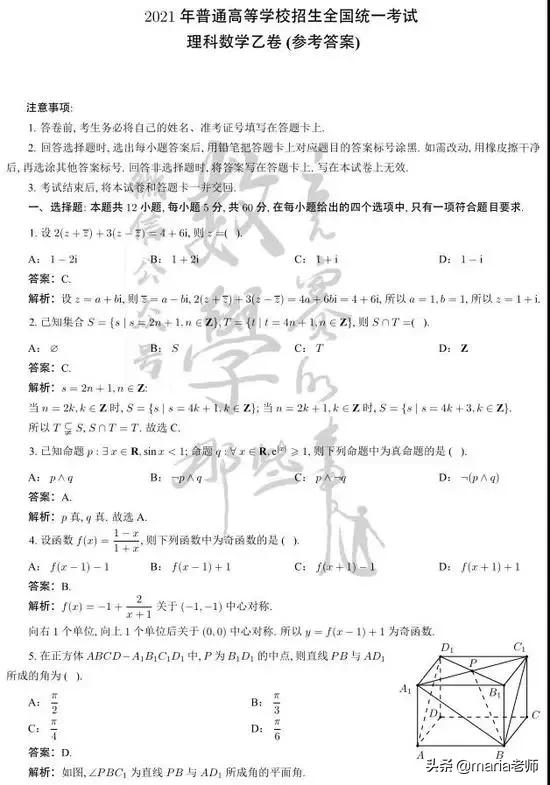 2021 年普通高等学校招生全国统一考试
理科数学乙卷 (参考答案)
注意事项:
1. 答卷前, 考生务必将自己的姓名、准考证号填写在答题卡上.
2. 回答选择题时, 选出每小题答案后, 用铅笔把答题卡上对应题目的答案标号涂黑. 如需改动, 用橡皮擦干净
后, 再选涂其他答案标号. 回答非选择题时, 将答案写在答题卡上. 写在本试卷上无效.
3. 考试结束后, 将本试卷和答题卡一并交回.
一、选择题: 本题共 12 小题, 每小题 5 分, 共 60 分, 在每小题给出的四个选项中, 只有一项符合题目要求.
1. 设 2(z + z̅) + 3(z − z̅) = 4 + 6i, 则 z =( ).
A: 1 − 2i B: 1 + 2i C: 1 + i D: 1 − i
答案: C.
解析: 设 z = a + bi, 则 z̅ = a − bi, 2(z + z̅) + 3(z − z̅) = 4a + 6bi = 4 + 6i, 所以 a = 1, b = 1, 所以 z = 1 + i.
2. 已知集合 S = {s | s = 2n + 1, n ∈ Z}, T = {t | t = 4n + 1, n ∈ Z}, 则 S ∩ T =( ).
A: ∅ B: S C: T D: Z
答案: C.
解析: s = 2n + 1, n ∈ Z:
当 n = 2k, k ∈ Z 时, S = {s | s = 4k + 1, k ∈ Z}; 当 n = 2k + 1, k ∈ Z 时, S = {s | s = 4k + 3, k ∈ Z}.
所以 T ⊊ S, S ∩ T = T. 故选 C.
3. 已知命题 p : ∃ x ∈ R, sin x < 1; 命题 q : ∀ x ∈ R, e^|x| ⩾ 1, 则下列命题中为真命题的是 ( ).
A: p ∧ q B: ¬p ∧ q C: p ∧ ¬q D: ¬(p ∧ q)
答案: A.
解析: p 真, q 真. 故选 A.
4. 设函数 f(x) = (1 − x)/(1 + x), 则下列函数中为奇函数的是 ( ).
A: f(x − 1) − 1 B: f(x − 1) + 1 C: f(x + 1) − 1 D: f(x + 1) + 1
答案: B.
解析: f(x) = −1 + 2/(x + 1) 关于 (−1, −1) 中心对称.
向右 1 个单位, 向上 1 个单位后关于 (0, 0) 中心对称. 所以 y = f(x − 1) + 1 为奇函数.
5. 在正方体 ABCD − A₁B₁C₁D₁ 中, P 为 B₁D₁ 的中点, 则直线 PB 与 AD₁
所成的角为 ( ).
A: π/2 B: π/3
C: π/4 D: π/6
答案: D.
解析: 如图, ∠PBC₁ 为直线 PB 与 AD₁ 所成角的平面角.
D₁ C₁
P
A₁ B₁
D C
A B
头条 @maria老师
微信公众号
数学竞赛的那些事